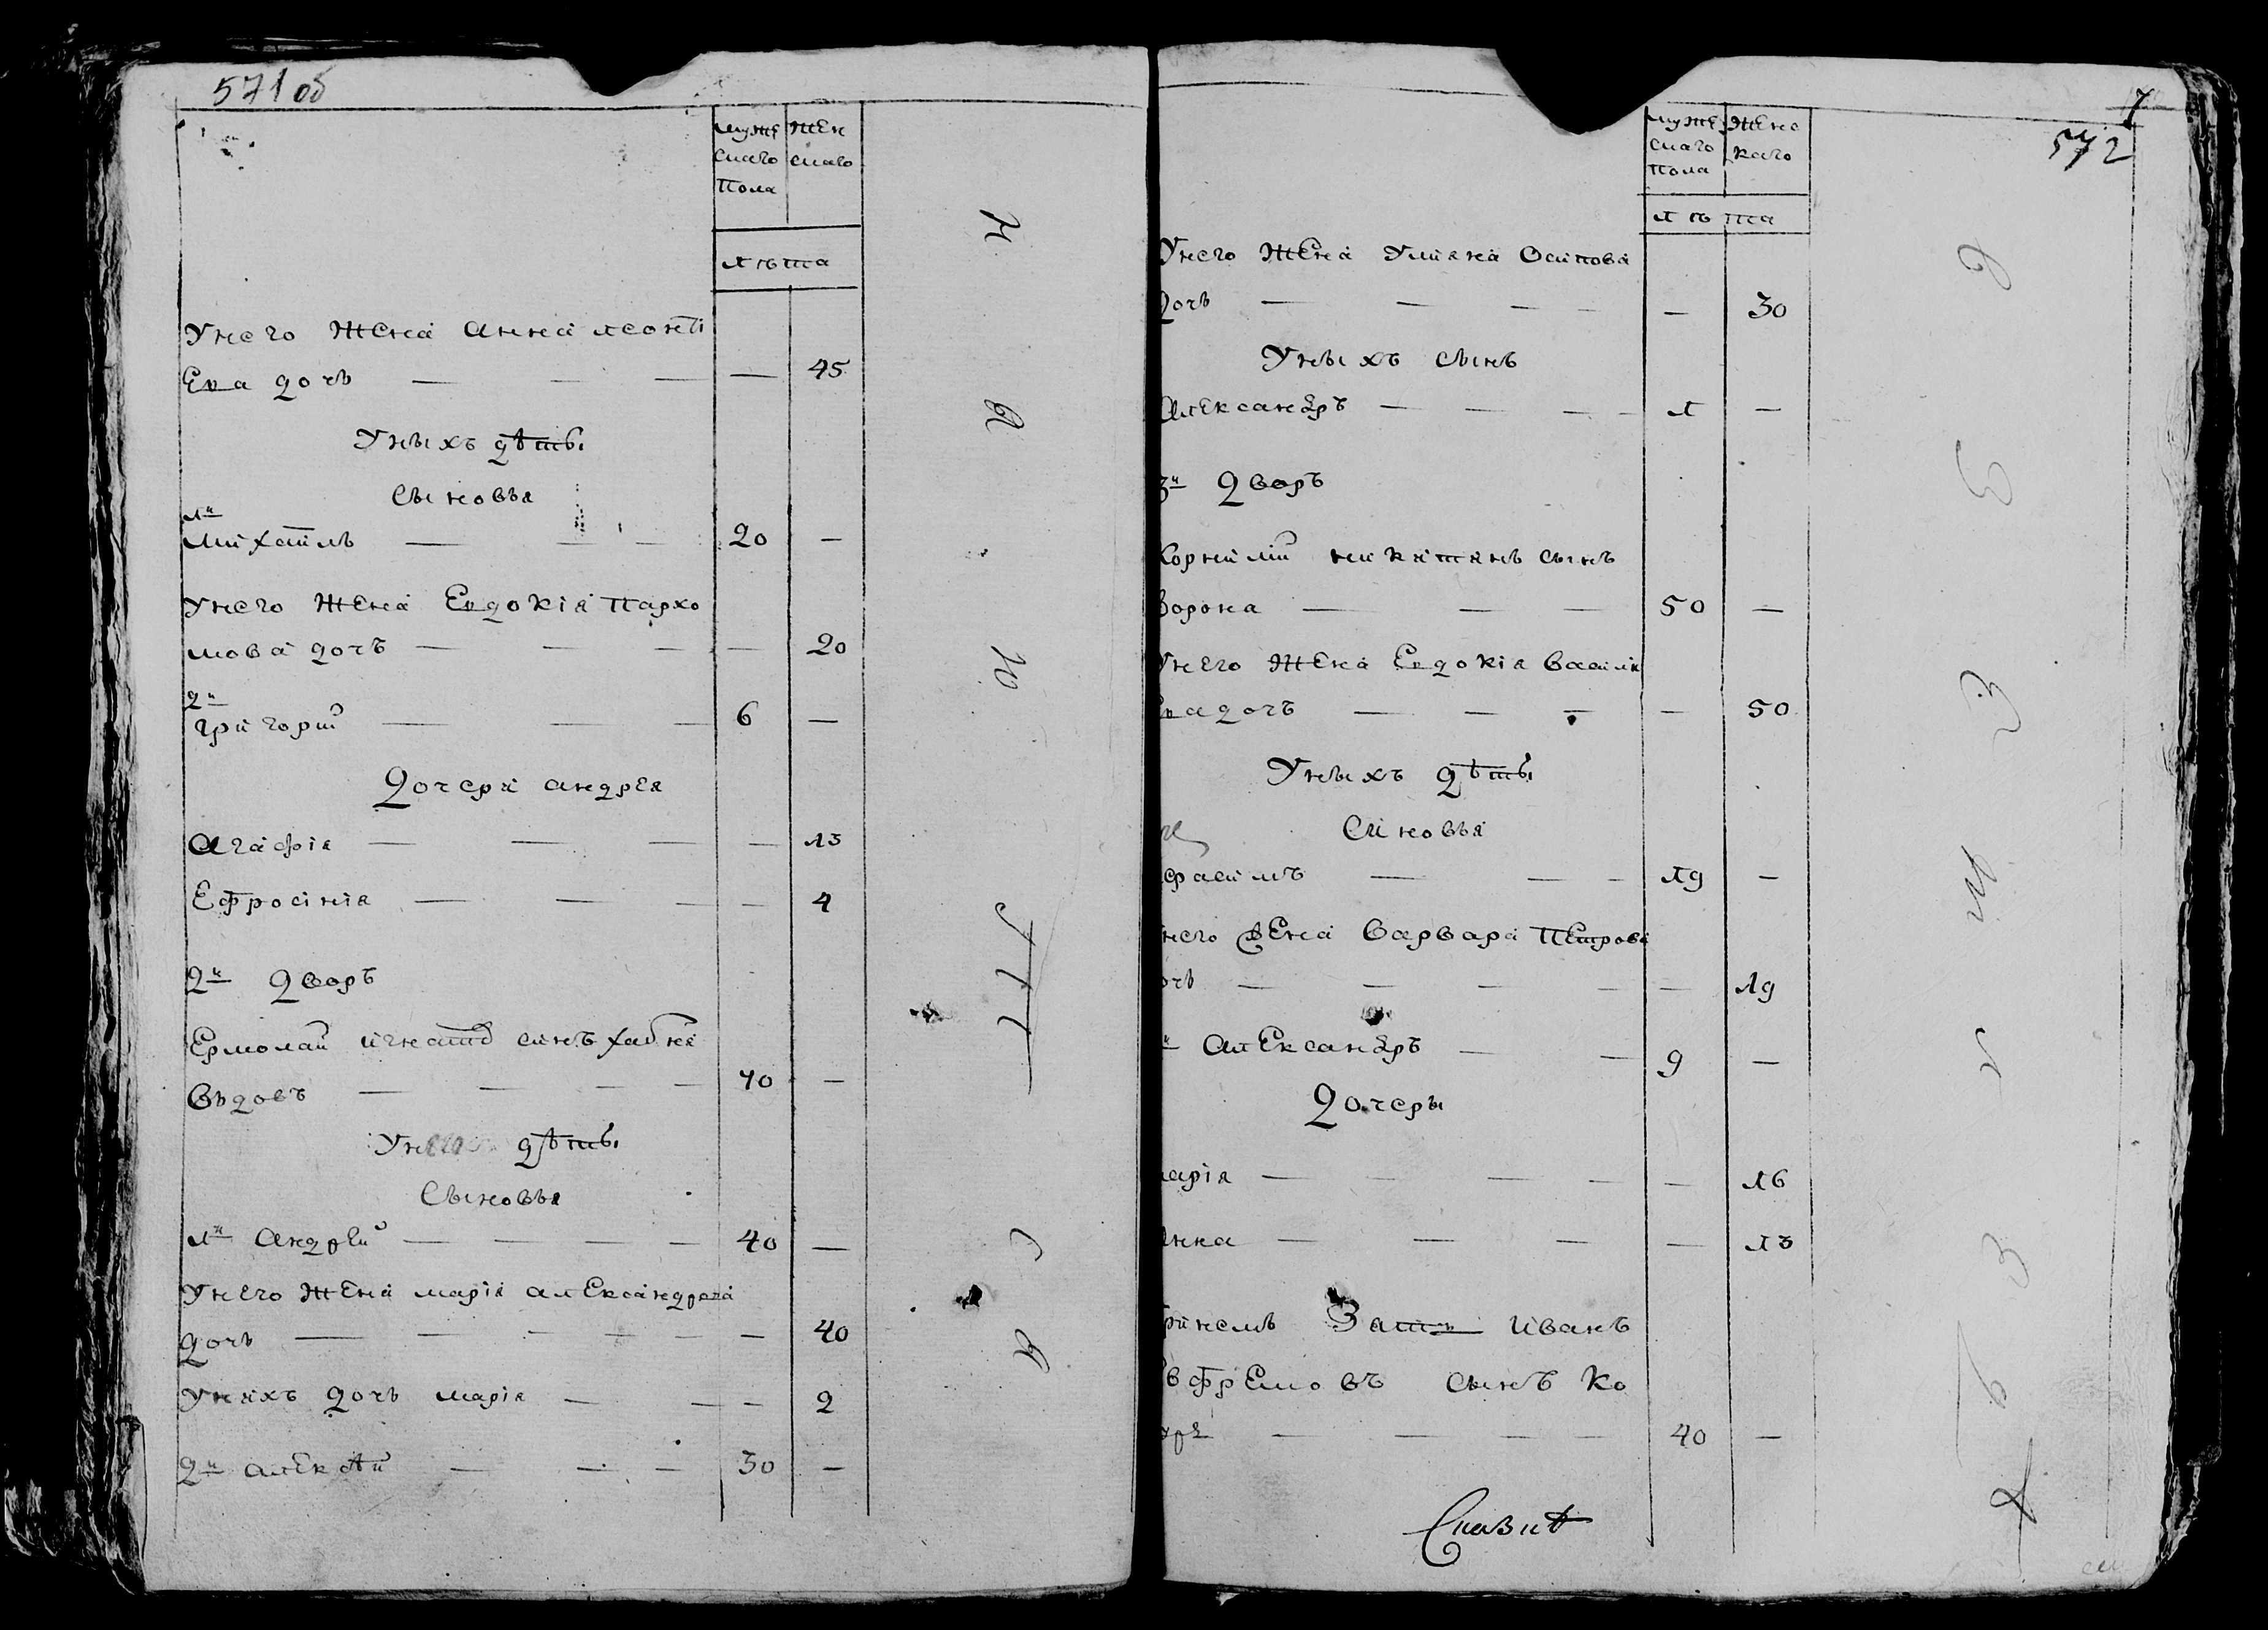 571 об
муже жен
скаго скаго
пола
лѣта
Унего жена анна леонті
Ева дочь — — — — 45
Уныхъ дѣты
Сыновья
1й
Михаилъ — — — 20 —
Унего жена Евдокія Пархо
мова дочъ — — — — 20
2й
григорий — — — 6 —
Дочери андрея
Агафія — — — — 13
Ефросінія — — — — 4
2й Дворъ
Ермолай игнатов синъ
вдовъ — — — — 70 —
дѣты
Сыновья
1й Андрей — — — — 40 —
Унего жена марія александрова
дочь — — — — — — 40
Унихъ дочь марія — — — 2
2й алексѣй — — — 30 —
7
572
муже женс
скаго каго
пола
лѣта
Унего жена Уліана Осипова
дочь — — — — — 30
Уныхъ сынъ
Александръ — — — — 1 —
3й Дворъ
Корнилій никитинъ сынъ
Ворона — — — 50 —
Унего жена Евдокія Василі
ева дочъ — — — — 50
Уныхъ дѣты
Сыновья
фасимъ — — — 19 —
него жена Варвара Петрова
очь — — — — — 19
Александръ — — 9 —
Дочеры
марія — — — — — 16
Анна — — — — 13
Принемъ Зать Иванъ
Евфремовъ сынъ Ко
— — — — 40 —